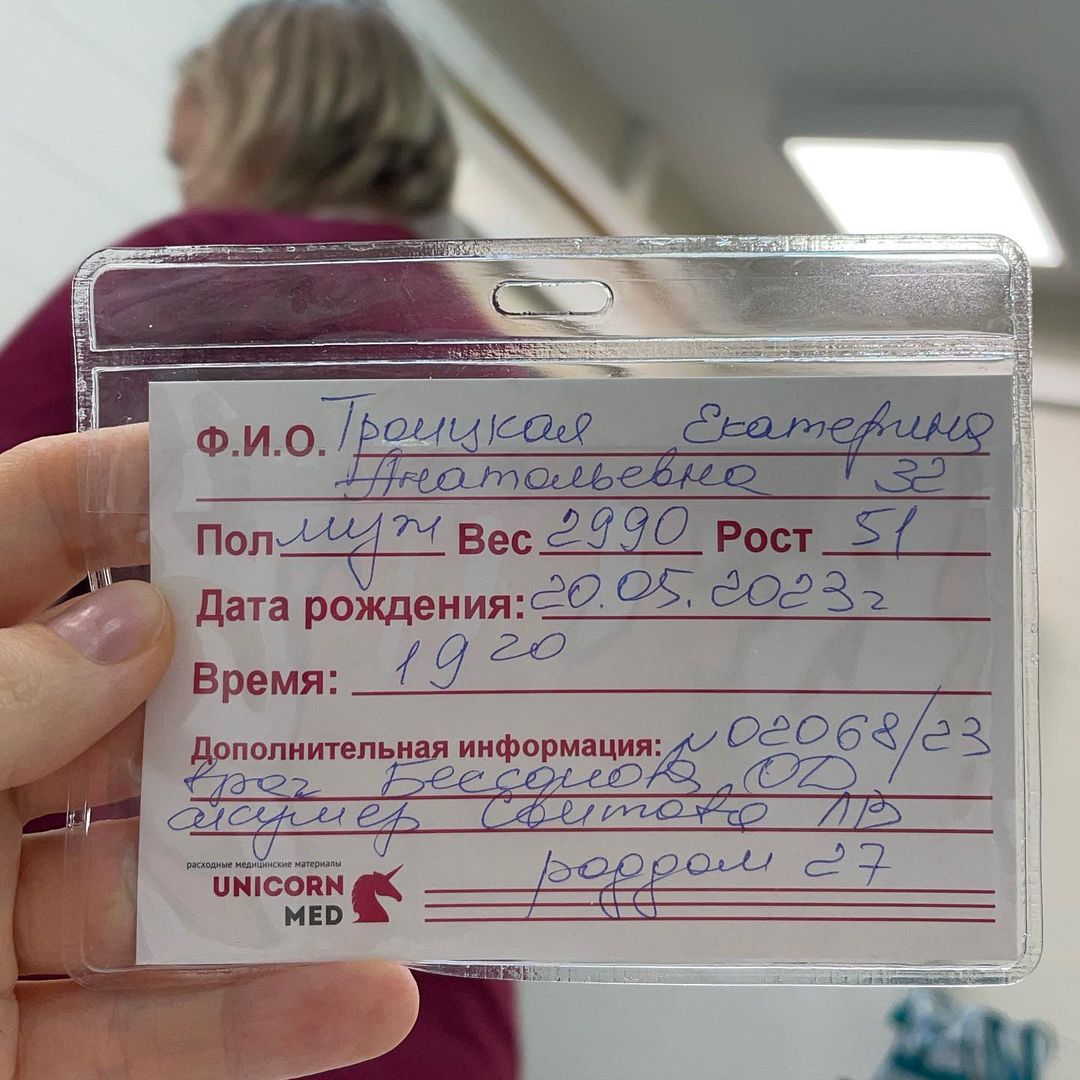 Ф.И.О. Троицкая Екатерина
Анатольевна 32
Пол муж Вес 2990 Рост 51
Дата рождения: 20.05.2023г
Время: 19 20
Дополнительная информация: N02068/23
врач Бессонова ОД
акушер Свитова ЛВ
роддом 27
расходные медицинские материалы
UNICORN
MED